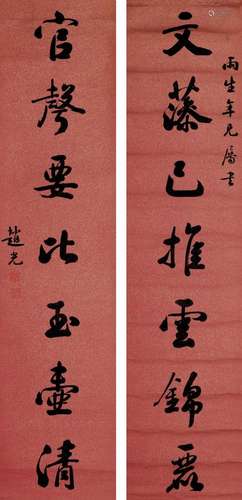 文藻已推雲錦麗
雨生年兄屬書
官聲要比玉壺清
趙光